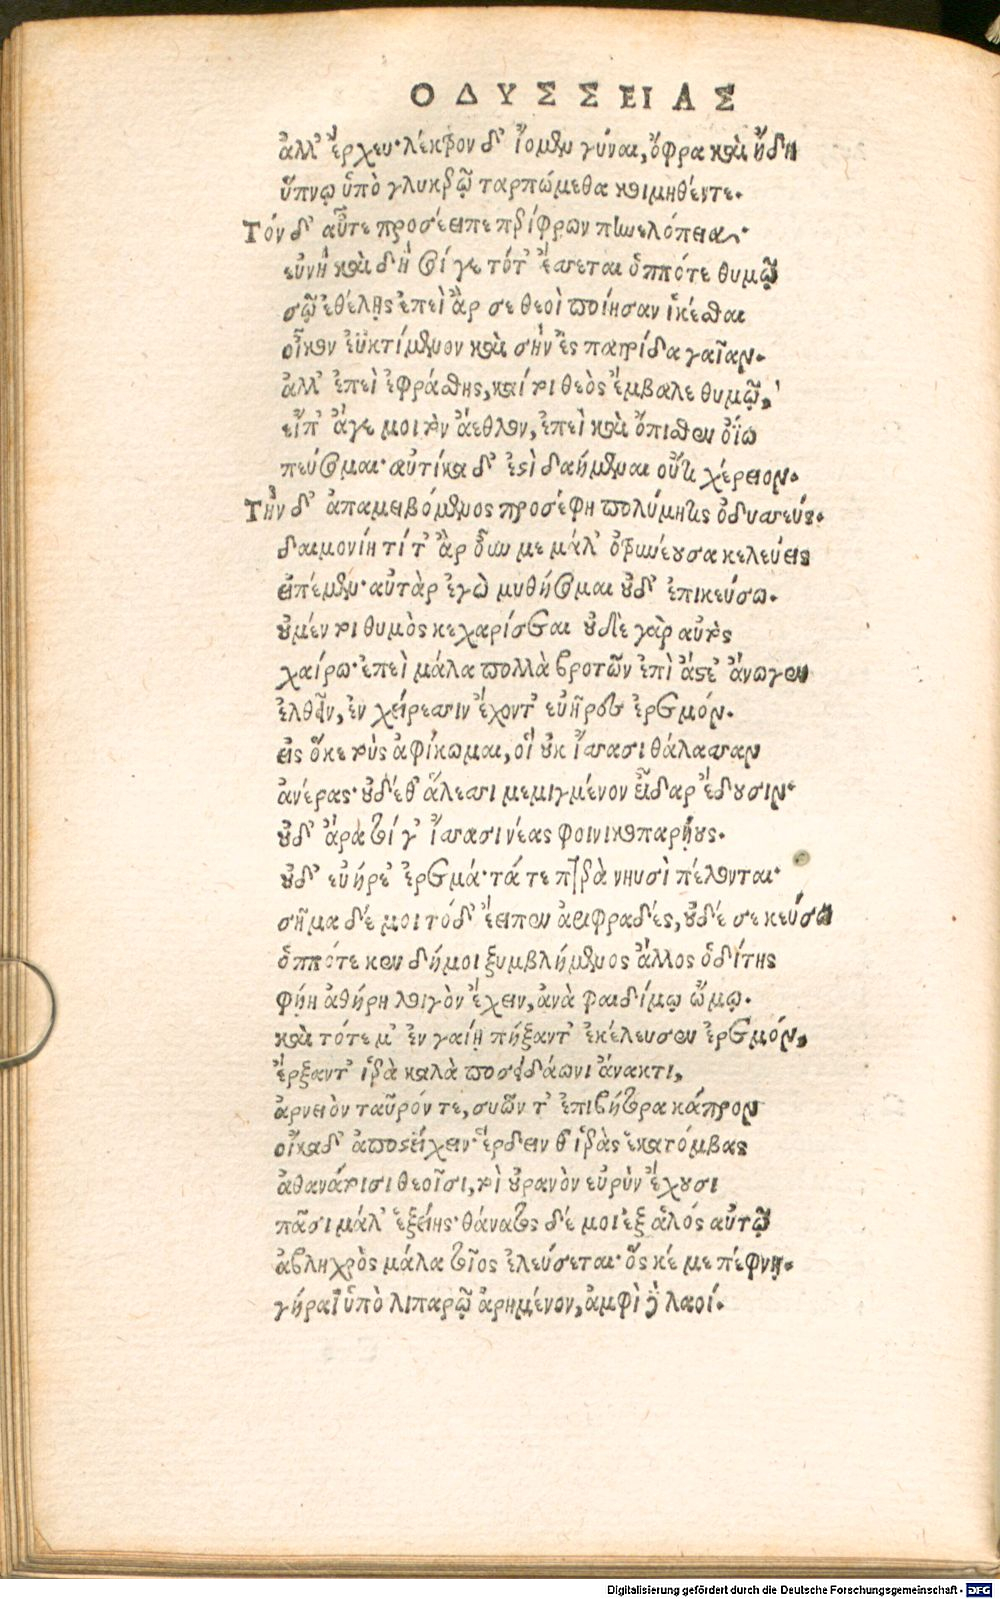 ΟΔΥΣΣΕΙΑΣ
ἀλλ' ἔρχευ· λέκτρον δ' ἴομεν γύναι, ὄφρα καὶ ἤδη
ὕπνῳ ὑπὸ γλυκερῷ ταρπώμεθα κοιμηθέντε.
Τὸν δ' αὖτε προσέειπε περίφρων πηνελόπεια·
εὐνὴ καὶ δὴ σοί γε τότ' ἔσσεται ὁππότε θυμῷ
σῷ ἐθέλῃς ἐπεὶ ἂρ σε θεοὶ ποίησαν ἱκέσθαι
οἶκον ἐϋκτίμενον καὶ σὴν ἐς πατρίδα γαῖαν.
ἀλλ' ἐπεὶ ἐφράσθης, καί τοι θεὸς ἔμβαλε θυμῷ,
εἴπ' ἄγε μοι τὸν ἄεθλον, ἐπεὶ καὶ ὄπισθεν ὀΐω
πεύσομαι· αὐτίκα δ' ἐστὶ δαήμεναι οὔτι χέρειον.
Τὴν δ' ἀπαμειβόμενος προσέφη πολύμητις ὀδυσσεύς.
δαιμονίη τί τ' ἂρ δὴν με μάλ' ὀτρυνέουσα κελεύεις
εἰπέμεν· αὐτὰρ ἐγὼ μυθήσομαι οὐδ' ἐπικεύσω.
οὐ μέν τοι θυμὸς κεχαρήσεται οὐδὲ γὰρ αὐτὸς
χαίρω· ἐπεὶ μάλα πολλὰ βροτῶν ἐπὶ ἄστε' ἄνωγεν
ἐλθεῖν, ἐν χείρεσσιν ἔχοντ' εὐῆρες ἐρετμόν.
εἰς ὅκε τοὺς ἀφίκωμαι, οἳ οὐκ ἴσασι θάλασσαν
ἀνέρας· οὐδέ θ' ἅλεσσι μεμιγμένον εἶδαρ ἔδουσιν·
οὐδ' ἄρα τοί γ' ἴσασι νέας φοινικοπαρῄους.
οὐδ' εὐήρε' ἐρετμά· τά τε πτερὰ νηυσὶ πέλονται·
σῆμα δέ μοι τόδ' ἔειπεν ἀριφραδές, οὐδέ σε κεύσω
ὁππότε κεν δή μοι ξυμβλήμενος ἄλλος ὁδίτης
φήῃ ἀθηρηλοιγὸν ἔχειν, ἀνὰ φαιδίμῳ ὤμῳ.
καὶ τότε μ' ἐν γαίῃ πήξαντ' ἐκέλευσεν ἐρετμόν,
ἔρξαντ' ἱερὰ καλὰ ποσειδάωνι ἄνακτι,
ἀρνειὸν ταῦρόν τε, συῶν τ' ἐπιβήτορα κάπρον
οἴκαδ' ἀποστείχειν· ἔρδειν θ' ἱερὰς ἑκατόμβας
ἀθανάτοισι θεοῖσι, τοὶ οὐρανὸν εὐρὺν ἔχουσι
πᾶσι μάλ' ἑξείης· θάνατος δέ μοι ἐξ ἁλός αὐτῷ
ἀβληχρὸς μάλα τοῖος ἐλεύσεται· ὅς κέ με πέφνῃ.
γήραϊ ὑπὸ λιπαρῷ ἀρημένον, ἀμφὶ δὲ λαοί.
Digitalisierung gefördert durch die Deutsche Forschungsgemeinschaft - DFG